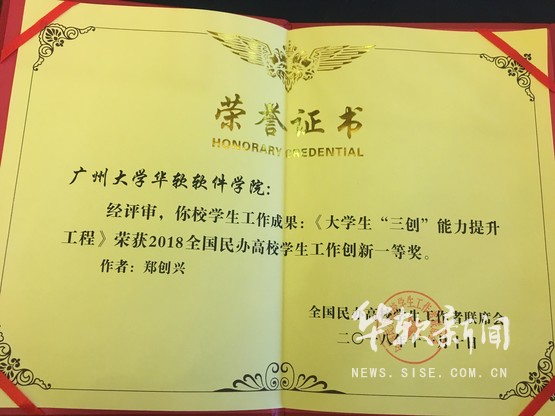 荣誉证书
HONORARY CREDENTIAL
广州大学华软软件学院：
经评审，你校学生工作成果：《大学生“三创”能力提升
工程》荣获2018全国民办高校学生工作创新一等奖。
作者：郑创兴
全国民办高校学生工作者联席会
二〇一八年十
华软新闻
NEWS.SISE.COM.CN